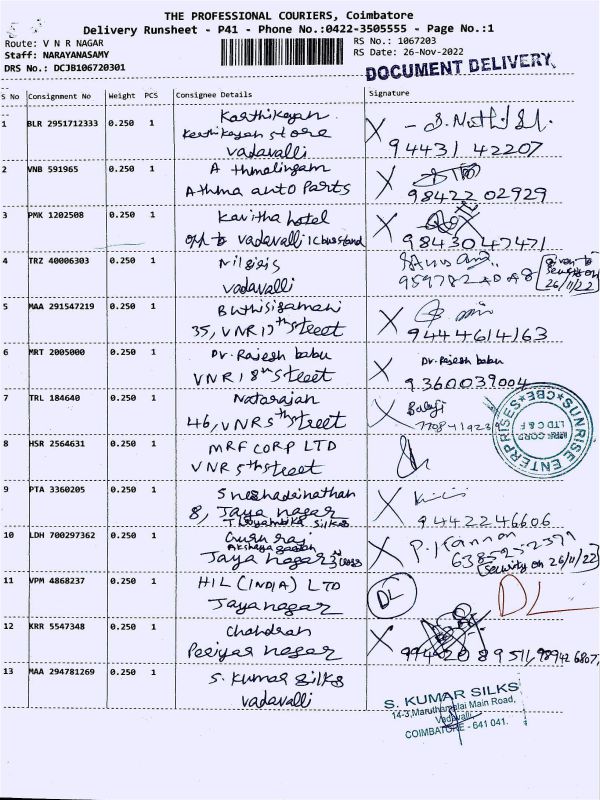 THE PROFESSIONAL COURIERS, Coimbatore
Delivery Runsheet - P41 - Phone No.:0422-3505555 - Page No.:1
Route: V N R NAGAR
RS No.: 1067203
Staff: NARAYANASAMY
RS Date: 26-Nov-2022
DRS No.: DCJB106720301
DOCUMENT DELIVERY
S No Consignment No Weight PCS Consignee Details Signature
1 BLR 2951712333 0.250 1 Karthikeyan
Karthikeyan store
vadavalli 94431 42207
2 VNB 591965 0.250 1 Athmalingam
Athma auto Parts 98422 02929
3 PMK 1202508 0.250 1 Kavitha hotel
opp to vadavalli 98430 47471
4 TRZ 40006303 0.250 1 Nilgiris
vadavalli
given to
security on
26/11/22
5 MAA 291547219 0.250 1
35, VNR 17th street 9444614163
6 MRT 2005000 0.250 1 Dr. Rajesh babu Dr. Rajesh babu
VNR 18th street 9360039004
7 TRL 184640 0.250 1 Natarajan Balaji
46, VNR 5th street
SUNRISE ENTERPRISES CBE
MRF CORP
LTD C & F
8 HSR 2564631 0.250 1 MRF CORP LTD
VNR 5th street
9 PTA 3360205 0.250 1
8, Jaya nagar 9442246606
10 LDH 700297362 0.250 1 P. Kannan
Jaya nagar
security on 26/11/22
11 VPM 4868237 0.250 1 HIL (INDIA) LTD DL DL
Jaya nagar
12 KRR 5547348 0.250 1 Chandran
Periyar nagar
13 MAA 294781269 0.250 1 S. Kumar Silks
vadavalli
S. KUMAR SILKS
14-3, Maruthamalai Main Road,
Vadavalli,
COIMBATORE - 641 041.